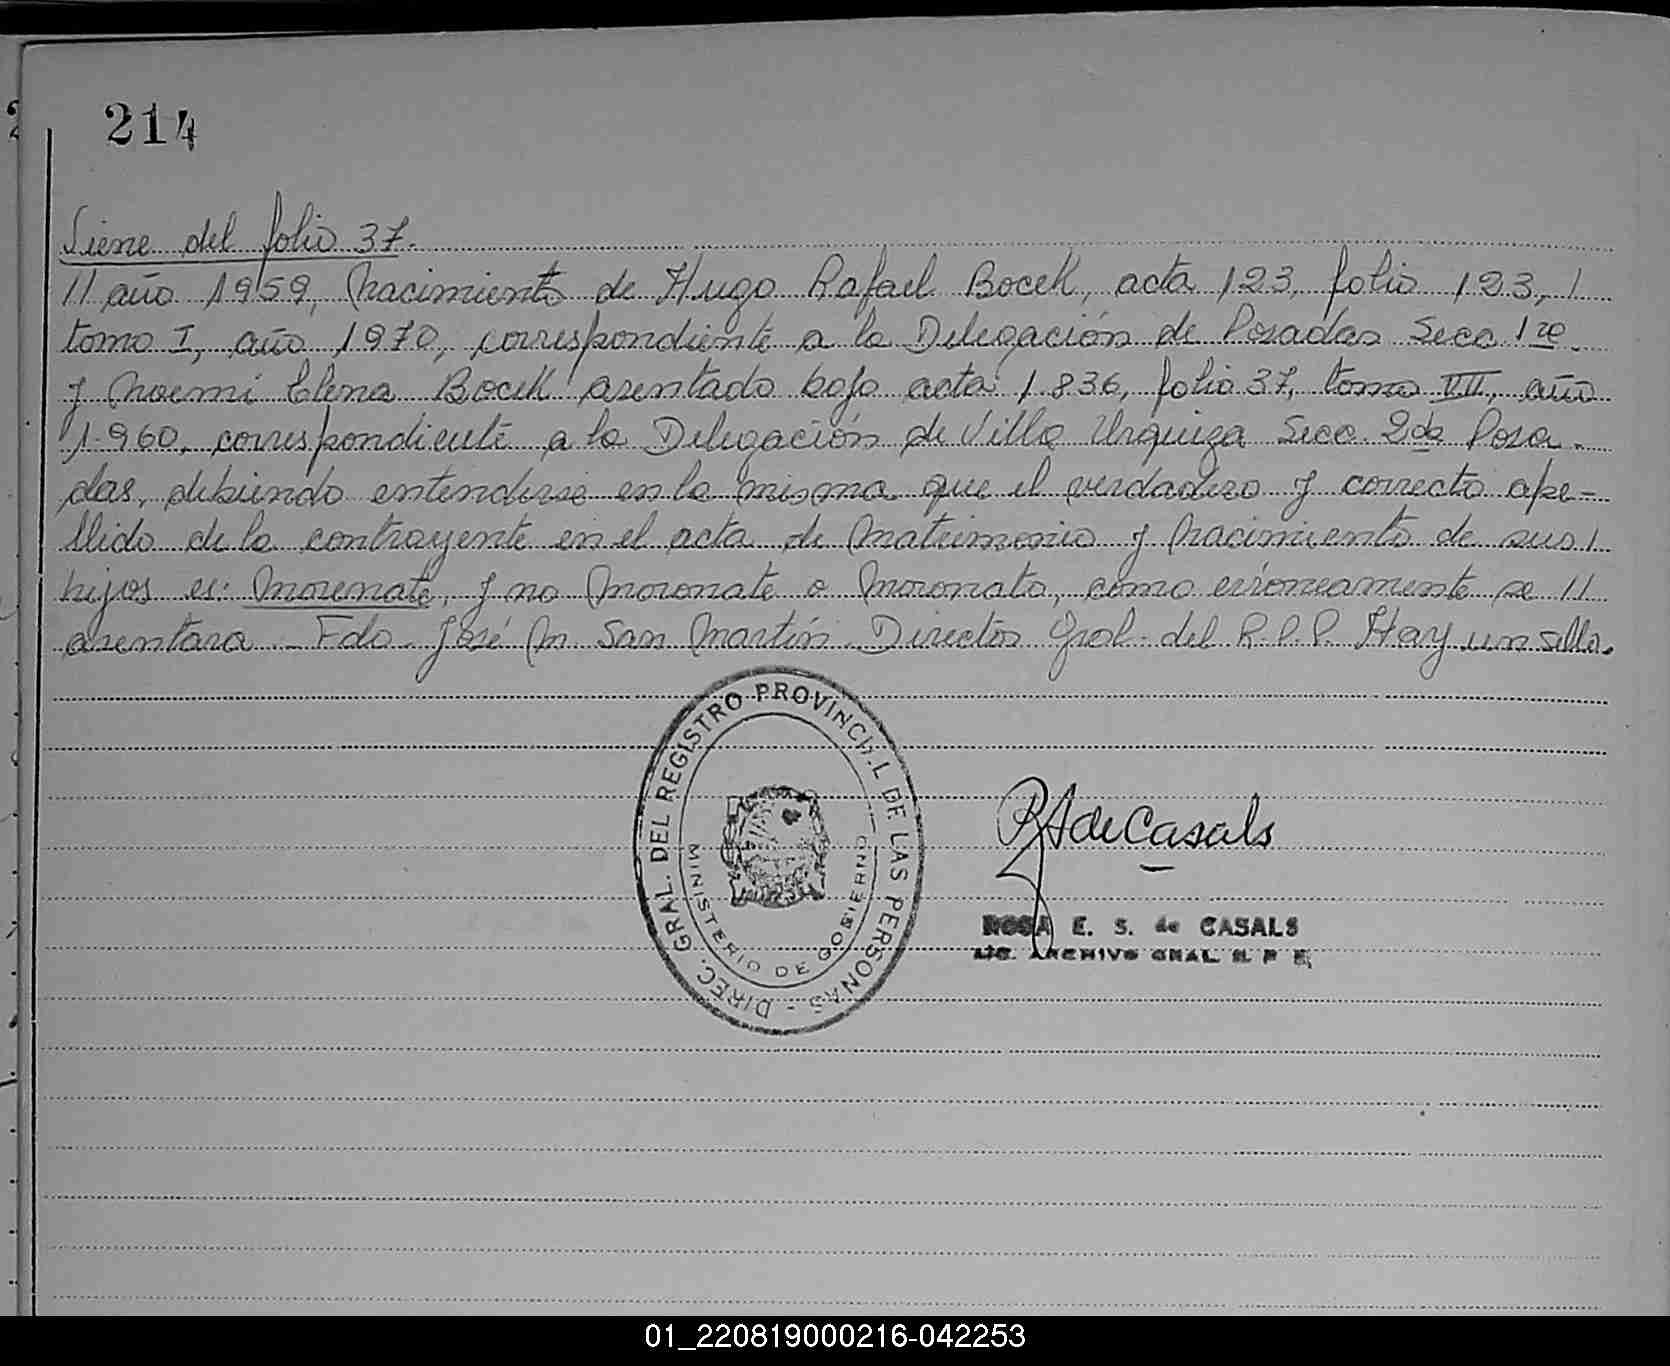 214
Viene del folio 37.
// año 1959, Nacimiento de Hugo Rafael Bocek, acta 123, folio 123, /
tomo I, año 1970, correspondiente a la Delegación de Posadas Secc. 1ra.
y Noemí Elena Bocek asentado bajo acta 1.836, folio 37, tomo VII, año
1.960, correspondiente a la Delegación de Villa Urquiza Secc. 2da Posa-
das, debiendo entenderse en la misma que el verdadero y correcto ape-
llido de la contrayente en el acta de Matrimonio y Nacimiento de sus /
hijos es: Morenate, y no Moronate o Moronato, como erróneamente se //
asentara.- Fdo. José M. San Martín. Director Gral. del R.P.P. Hay un sello.
DIREC. GRAL. DEL REGISTRO PROVINCIAL DE LAS PERSONAS -
MINISTERIO DE GOBIERNO
de Casals
ROSA E. S. de CASALS
ARCHIVO GRAL. R. P. P.
01_220819000216-042253